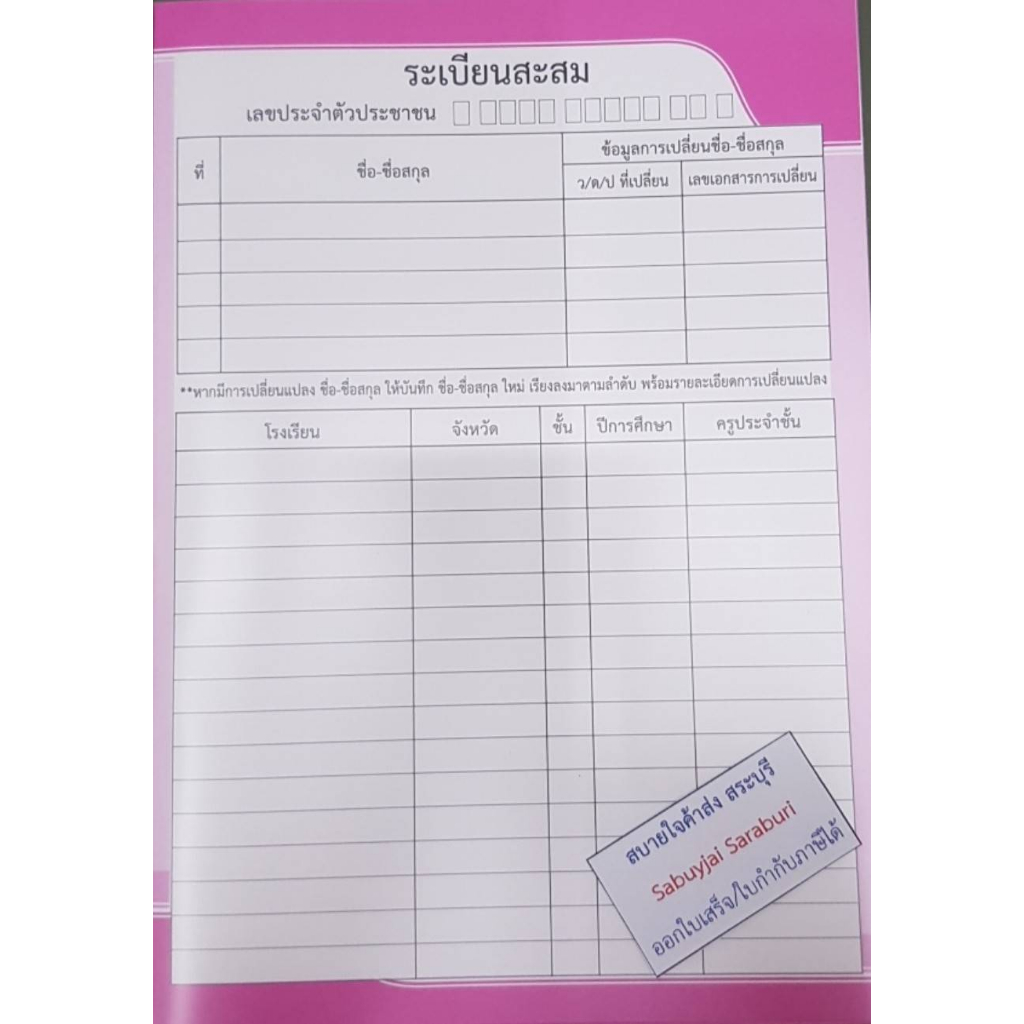 ระเบียนสะสม
เลขประจำตัวประชาชน
ที่ ชื่อ-ชื่อสกุล ข้อมูลการเปลี่ยนชื่อ-ชื่อสกุล
ว/ด/ป ที่เปลี่ยน เลขเอกสารการเปลี่ยน
**หากมีการเปลี่ยนแปลง ชื่อ-ชื่อสกุล ให้บันทึก ชื่อ-ชื่อสกุล ใหม่ เรียงลงมาตามลำดับ พร้อมรายละเอียดการเปลี่ยนแปลง
โรงเรียน จังหวัด ชั้น ปีการศึกษา ครูประจำชั้น
สบายใจค้าส่ง สระบุรี
Sabuyjai Saraburi
ออกใบเสร็จ/ใบกำกับภาษีได้